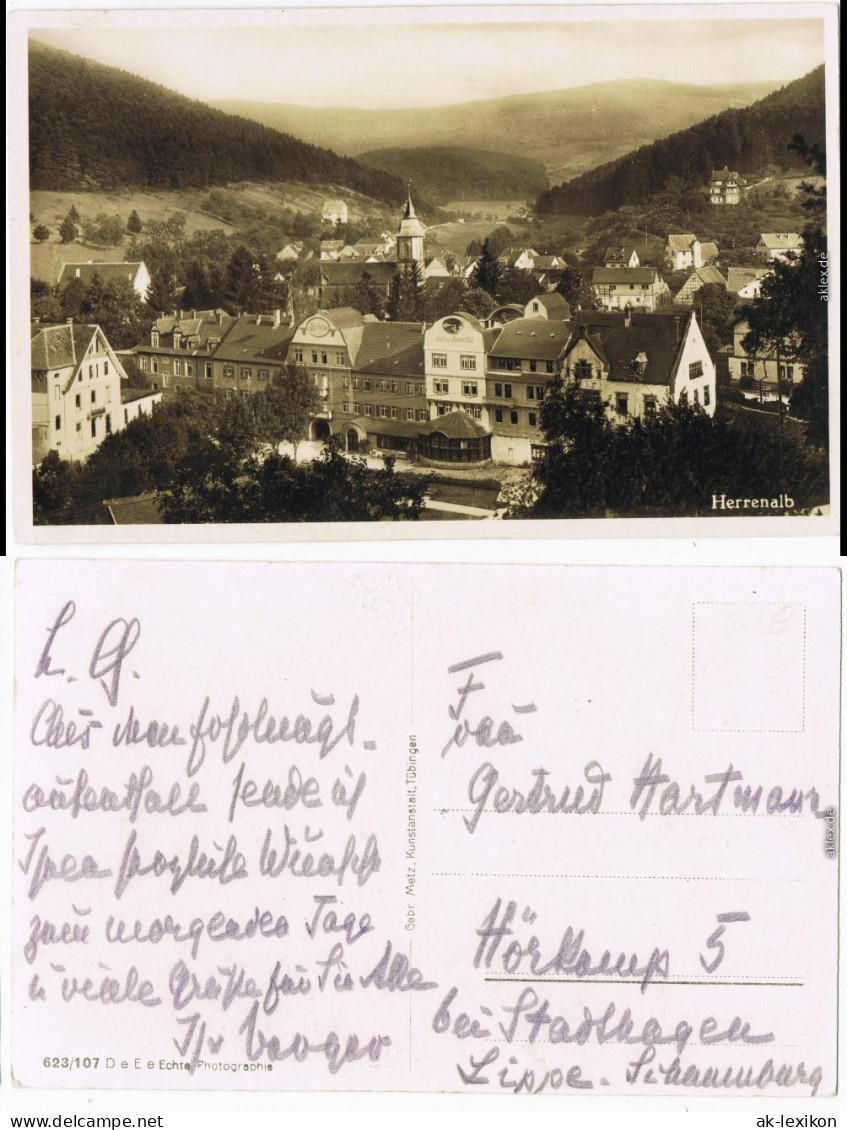 Herrenalb
aklex.de
L. G.
Aus dem Erholungs-
aufenthalt sende ich
Ihnen herzliche Wünsche
zum morgenden Tage
u viele Grüße für Sie Alle
Ihr
Gebr. Metz, Kunstanstalt, Tübingen
623/107 D e E e Echte Photographie
Frau
Gertrud Hartmann
Hörkamp 5
bei Stadthagen
Lippe-Schaumburg
aklex.de
www.delcampe.net
ak-lexikon